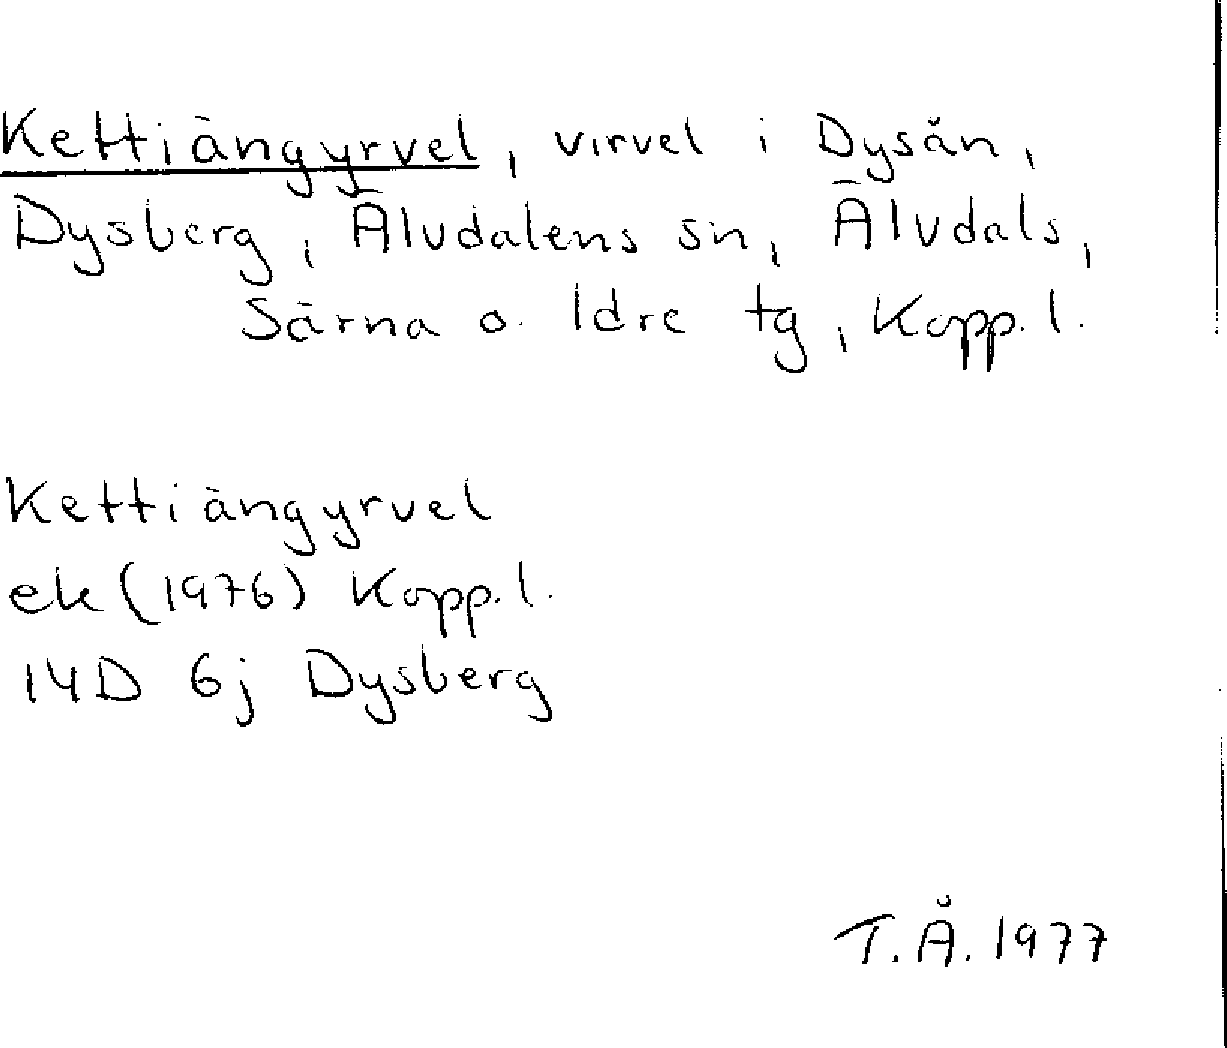 Kettiängyrvel, virvel i Dysån,
Dysberg, Älvdalens sn, Älvdals,
Särna o. Idre tg, Kopp. l.
Kettiängyrvel
ek (1976) Kopp. l.
14D 6j Dysberg
T.Å. 1977